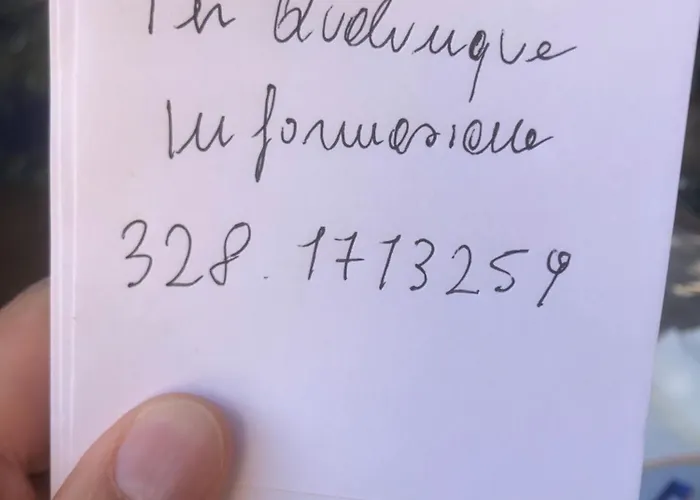 Per Qualunque
Informazione
328.1713259